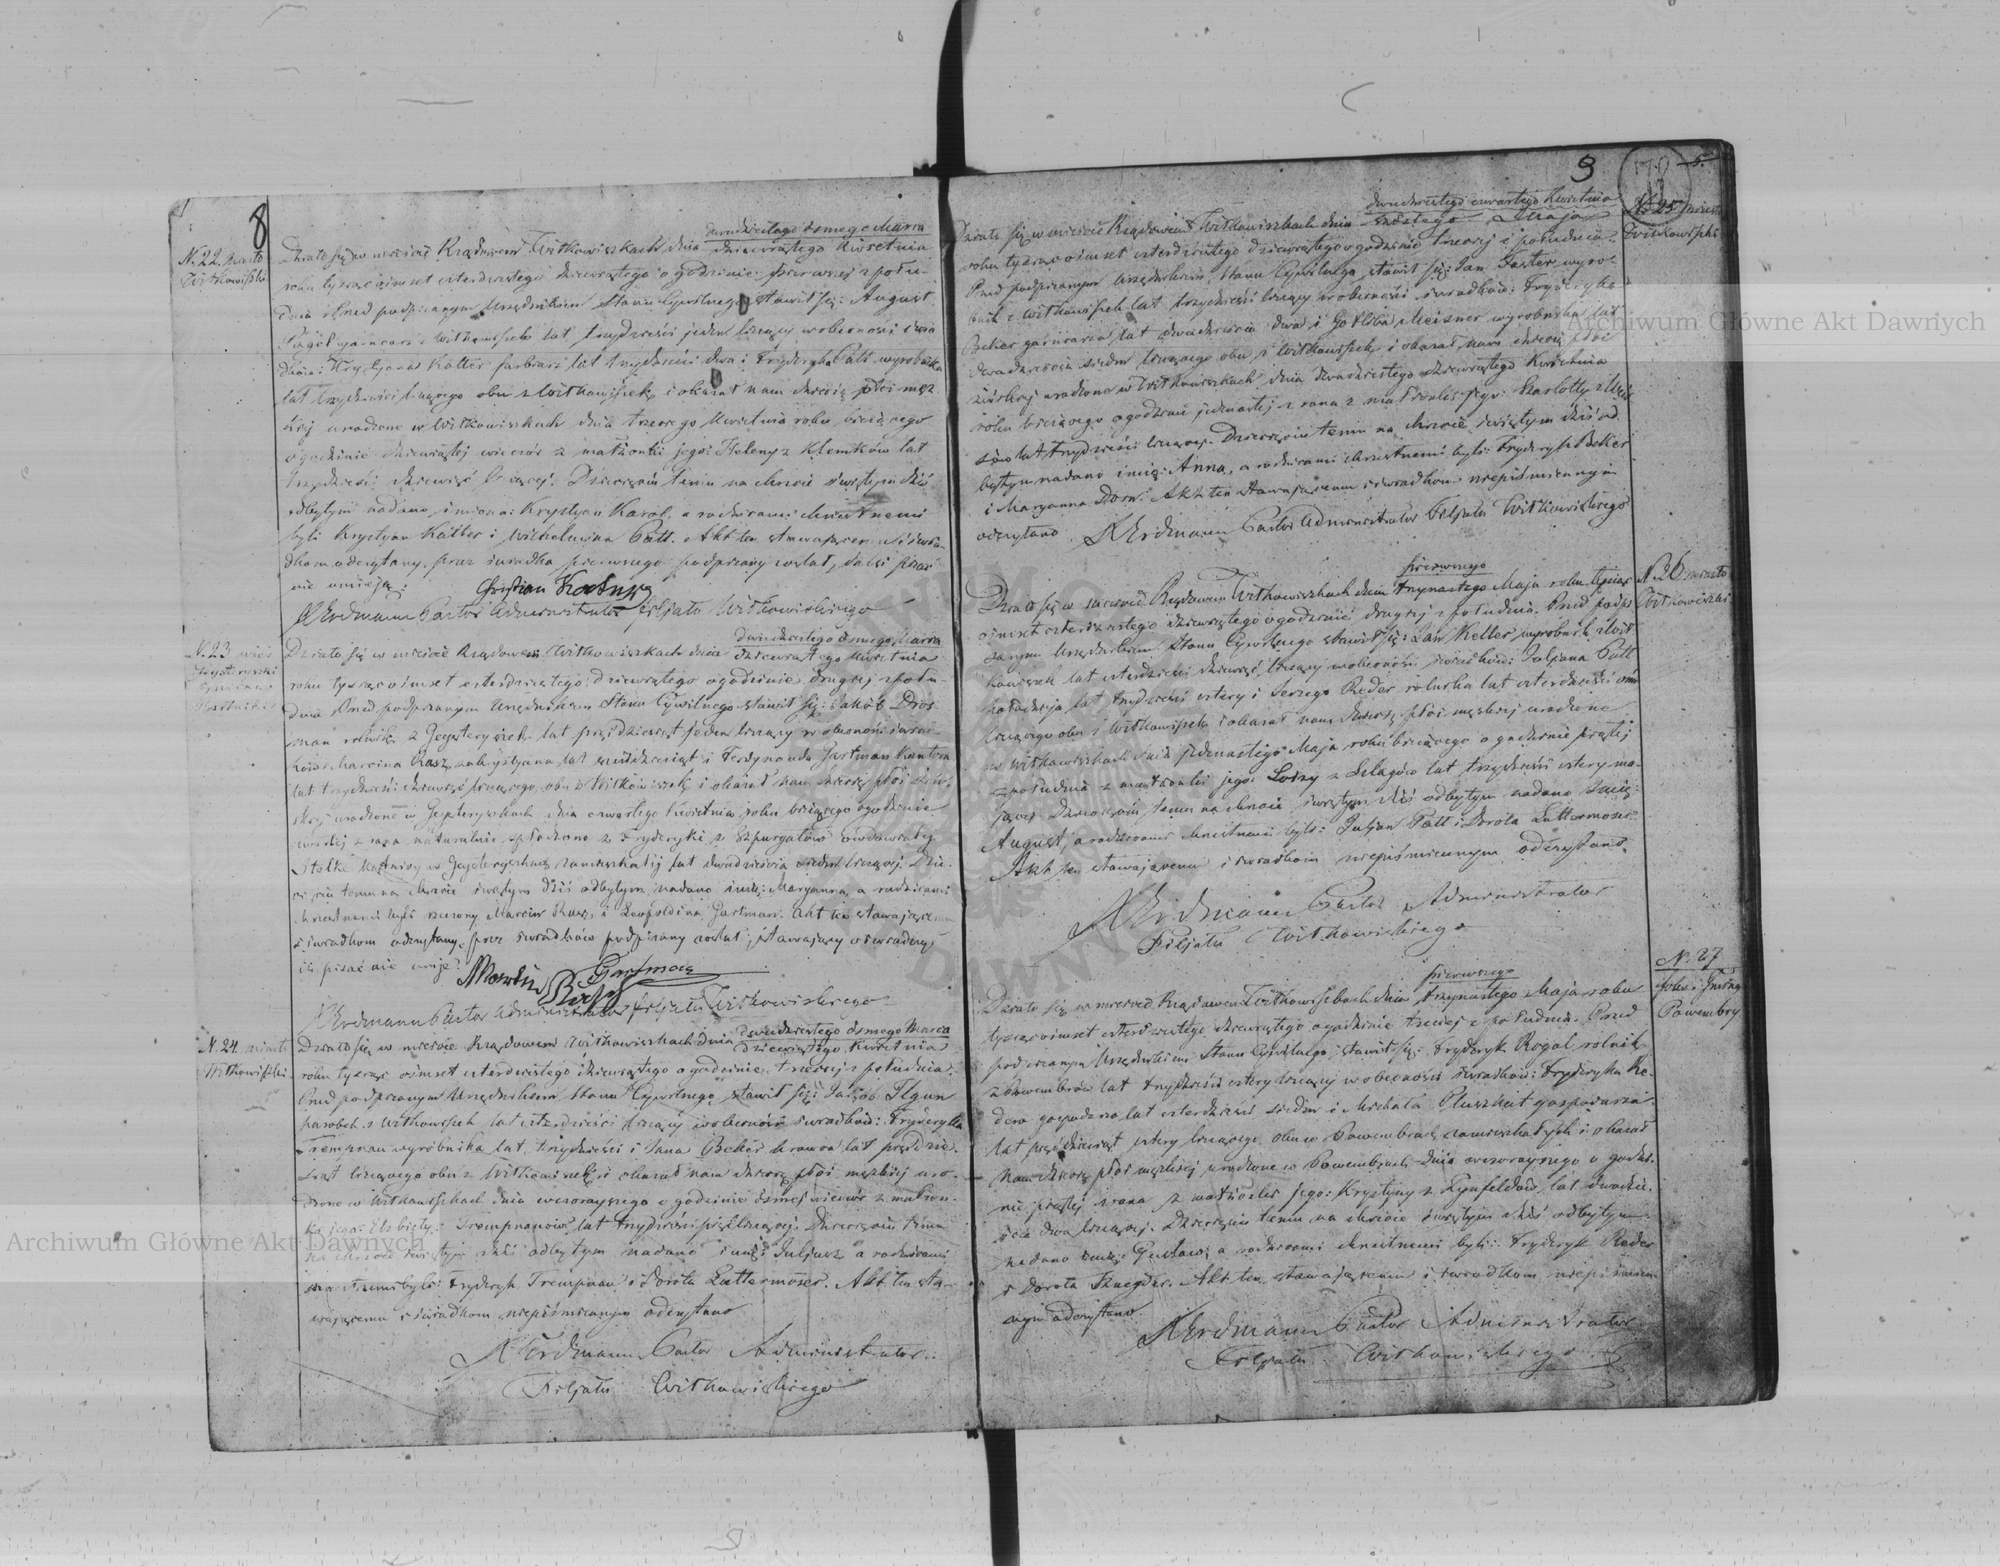 8
N. 22. miasto
Witkowiszki
dwudziestego ósmego Marca
Działo się w mieście Rządowem Witkowiszkach dnia dziewiątego Kwietnia
roku tysiąc ośmset czterdziestego dziewiątego o godzinie pierwszej z połu-
dnia. Przed podpisanym Urzędnikiem Stanu Cywilnego stawił się: August
garncarz z Witkowiszek lat trzydzieści jeden liczący w obecności świa
dków: Krystjana Kätter farbiarz lat trzydzieści dwa i Fryderyka Patt wyrobnika
lat trzydzieści liczącego obu z Witkowiszek, i okazał nam dziecię płci męz-
kiej urodzone w Witkowiszkach dnia trzeciego Kwietnia roku bieżącego
o godzinie dziewiątej wieczór z małżonki jego: Heleny z Klemków lat
trzydzieści dziewięć liczącej. Dziecięciu temu na chrzcie świętym dziś
odbytym nadano imiona: Krystyan Karol, a rodzicami chrzestnemi
byli Krystyan Kätter i Wilhelmina Patt. Akt ten stawającemu i świa-
dkom odczytany, przez świadka pierwszego podpisany został, dalsi pisać
nie umieją.
Christian
A Erdmann Pastor Administrator Filjału Witkowiskiego
N. 23 wieś
gmina
dwudziestego ósmego Marca
Działo się w mieście Rządowem Witkowiszkach dnia dziewiątego Kwietnia
roku tysiąc ośmset czterdziestego dziewiątego o godzinie drugiej z połu-
dnia. Przed podpisanym Urzędnikiem Stanu Cywilnego stawił się: Jakób Dros-
man rolnik z lat pięćdziesiąt jeden liczący w obecności świad-
ków: Marcina zakrystyana lat sześćdziesiąt i Ferdynanda Gartman Kantora
lat trzydzieści dziewięć liczącego, obu z Witkowiszek, i okazał nam dziecię płci żeń-
skiej urodzone w dnia czwartego Kwietnia roku bieżącego o godzinie
czwartej z rana naturalnie spłodzone z Fryderyki z Szpurgatów owdowiałej
w zamieszkałej lat dwadzieścia siedm liczącej. Dzie-
cięciu temu na chrzcie świętym dziś odbytym nadano imię: Maryanna, a rodzicami
chrzestnemi byli rzeczony Marcin i Leopoldina Gartman. Akt ten stawającemu
i świadkom odczytany, przez świadków podpisany został; stawający oświadczył
iż pisać nie umie.
Gartmann
A Erdmann Pastor Administrator Filjału Witkowiskiego
N. 24. miasto
Witkowiszki
dwudziestego ósmego Marca
Działo się w mieście Rządowem Witkowiszkach dnia dziewiątego Kwietnia
roku tysiąc ośmset czterdziestego dziewiątego o godzinie trzeciej z południa.
Przed podpisanym Urzędnikiem Stanu Cywilnego stawił się: Jakób Ilgun
parobek z Witkowiszek lat czterdzieści liczący w obecności świadków: Fryderyka
Trempnau wyrobnika lat trzydzieści i Jana Beker krawca lat pięćdzie-
siąt liczącego obu z Witkowiszek, i okazał nam dziecię płci męzkiej uro-
dzone w Witkowiszkach dnia wczorayszego o godzinie ósmej wieczór z małżon-
ki jego: Elżbiety z Trempnauów lat trzydzieści pięć liczącej. Dziecięciu temu
na chrzcie świętym dziś odbytym nadano imię: Juljusz a rodzicami
chrzestnemi byli: Fryderyk Trempnau i Dorota Luttermoser. Akt ten sta-
wającemu i świadkom niepiśmiennym odczytano
A Erdmann Pastor Administrator
Filjału Witkowiskiego
9
5.
N. 25 miasto
Witkowiszki
dwudziestego czwartego Kwietnia
Działo się w mieście Rządowem Witkowiszkach dnia szóstego Maja
roku tysiąc ośmset czterdziestego dziewiątego o godzinie trzeciej z południa.
Przed podpisanym Urzędnikiem Stanu Cywilnego stawił się: Jan wyro-
bnik z Witkowiszek lat trzydzieści liczący w obecności świadków: Fryderyka
Beker garncarza lat dwadzieścia dwa i Gotliba Meisner wyrobnika lat
dwadzieścia siedm liczącego obu z Witkowiszek, i okazał nam dziecię płci
żeńskiej urodzone w Witkowiszkach dnia dwudziestego dziewiątego Kwietnia
roku bieżącego o godzinie jedenastej z rana z małżonki jego: Karlotty z
lat trzydzieści liczącej. Dziecięciu temu na chrzcie świętym dziś od-
bytym nadano imię: Anna, a rodzicami chrzestnemi byli: Fryderyk Beker
i Maryanna Dorn. Akt ten stawającemu i świadkom niepiśmiennym
odczytano A Erdmann Pastor Administrator Filjału Witkowiskiego
N. 26 miasto
Witkowiszki
pierwszego
Działo się w mieście Rządowem Witkowiszkach dnia trzynastego Maja roku tysiąc
ośmset czterdziestego dziewiątego o godzinie drugiej z południa. Przed podpi-
sanym Urzędnikiem Stanu Cywilnego stawił się: Jan Keller wyrobnik z Wit-
kowiszek lat czterdzieści dziewięć liczący w obecności świadków: Juljana Patt
kołodzieja lat trzydzieści cztery i Jerzego Reder rolnika lat czterdzieści ośm
liczącego obu z Witkowiszek i okazał nam dziecię płci męzkiej urodzone
w Witkowiszkach dnia jedenastego Maja roku bieżącego o godzinie piątej
z południa z małżonki jego: Loizy z Szlagów lat trzydzieści cztery ma-
jącej. Dziecięciu temu na chrzcie świętym dziś odbytym nadano imię:
August, a rodzicami chrzestnemi byli: Juljan Patt i Dorota Luttermoser
Akt ten stawającemu i świadkom niepiśmiennym odczytano.
A Erdmann Pastor Administrator
Filjału Witkowiskiego
N. 27
Pawembry
pierwszego
Działo się w mieście Rządowem Witkowiszkach dnia trzynastego Maja roku
tysiąc ośmset czterdziestego dziewiątego o godzinie trzeciej z południa. Przed
podpisanym Urzędnikiem Stanu Cywilnego stawił się: Fryderyk Rogal rolnik
z Pawembrów lat trzydzieści cztery liczący w obecności świadków: Fryderyka Re-
dera gospodarza lat czterdzieści siedm i Michała Pluszkat gospodarza
lat pięćdziesiąt cztery liczącego, obu w Pawembrach zamieszkałych i okazał
nam dziecię płci męzkiej urodzone w Pawembrach dnia wczorayszego o godzi-
nie piątej z rana z małżonki jego: Krystyny z Lynfeldów lat dwadzie-
ścia dwa liczącej. Dziecięciu temu na chrzcie świętym dziś odbytym
nadano imię: Gustaw, a rodzicami chrzestnemi byli: Fryderyk Reder
i Dorota Sznejder. Akt ten stawającemu i świadkom niepiśmien-
nym odczytano.
A Erdmann Pastor Administrator
Filjału Witkowiskiego
Archiwum Główne Akt Dawnych
Archiwum Główne Akt Dawnych